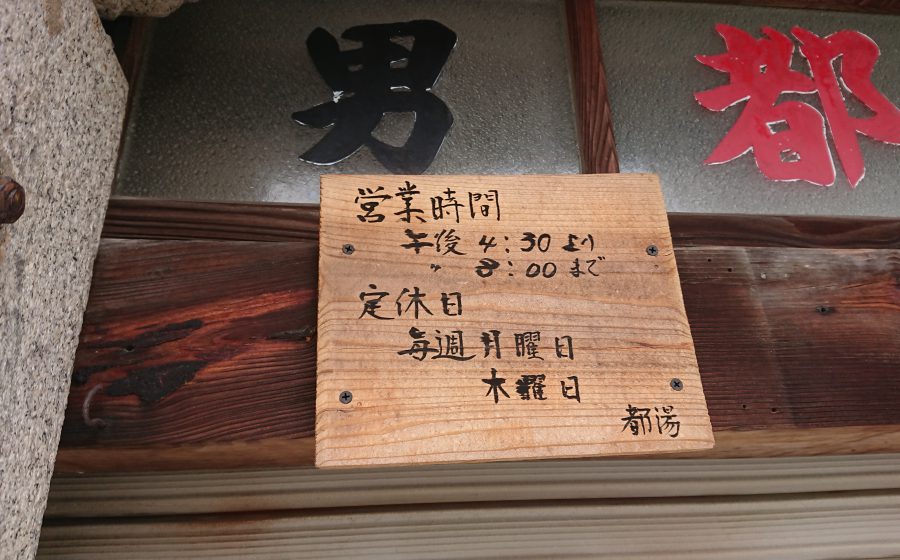 男
都
営業時間
午後 4:30より
〃 8:00まで
定休日
毎週月曜日
木曜日
都湯